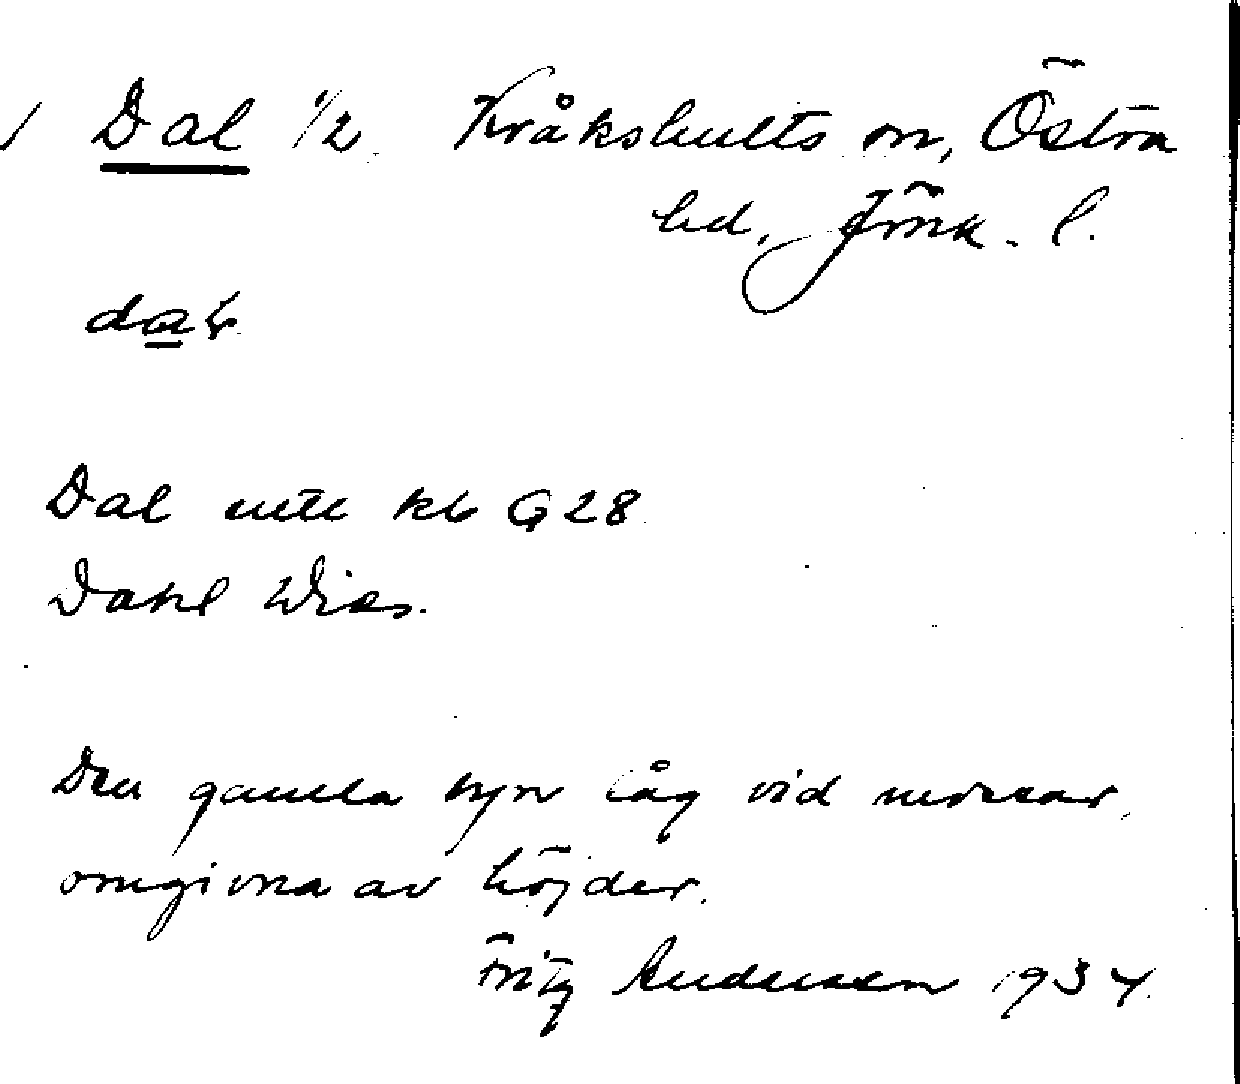 Dal 1/2 Kråkshults sn, Östra
hd, Jönk. l.
dal
Dal kb G 28
Dahl Wies.
Den gamla byn låg vid mossar,
omgivna av höjder.
Fritz Andersson 1934.